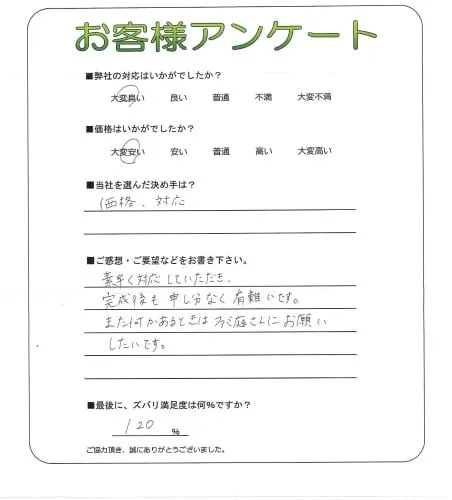 お客様アンケート
■弊社の対応はいかがでしたか？
大変良い 良い 普通 不満 大変不満
■価格はいかがでしたか？
大変安い 安い 普通 高い 大変高い
■当社を選んだ決め手は？
価格、対応
■ご感想・ご要望などをお書き下さい。
素早く対応していただき、
完成後も申し分なく有難いです。
また何かあるときは 庭さんにお願い
したいです。
■最後に、ズバリ満足度は何％ですか？
120 %
ご協力頂き、誠にありがとうございました。